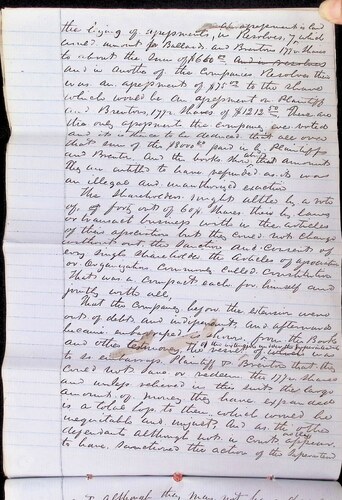 agreement is laid
the Zying of agreements, in Resolves, 7 which
amount for Ballards and Brentons 177½ shares
to about the sum of $660⁰⁰ and in resolves
and in another of the Companies Resolves there
was an agreement of $75⁰⁰ to the share
which would be an agreement on Plaintiff
and Brentons, 177½ shares of $1212⁵⁰ these are
the only agreements the Company ever voted
and it is thence to be deduced that all over
that sum of the $8000⁰⁰ paid in by Plaintiffs
and Brenton. And the books show that amount
they are entitled to have refunded as it was
an illegal and unauthorized exaction
The Shareholders might alter by a vote
of, of forty out of 60½ shares their by Laws
or transact business within the articles
of this association but they could not change
without out, the Sanction and Consent of
every single shareholder the Articles of association
or Organization Commonly Called Constitution
that was a compact each for himself and
jointly with all,
That this Company before the extension were
out of debt and independent and afterwards
became embarrassed is shown from the Books
and other testimony, the result of which was
to so embarrass Plaintiff & Brenton that they
could not save or redeem the 177½ shares
and unless relieved in this suit the large
amount of money they have expended
is a total loss to them which would be
inequitable and unjust, and as the other
defendants although not in Court appear
to have sanctioned the action of the
although they may not